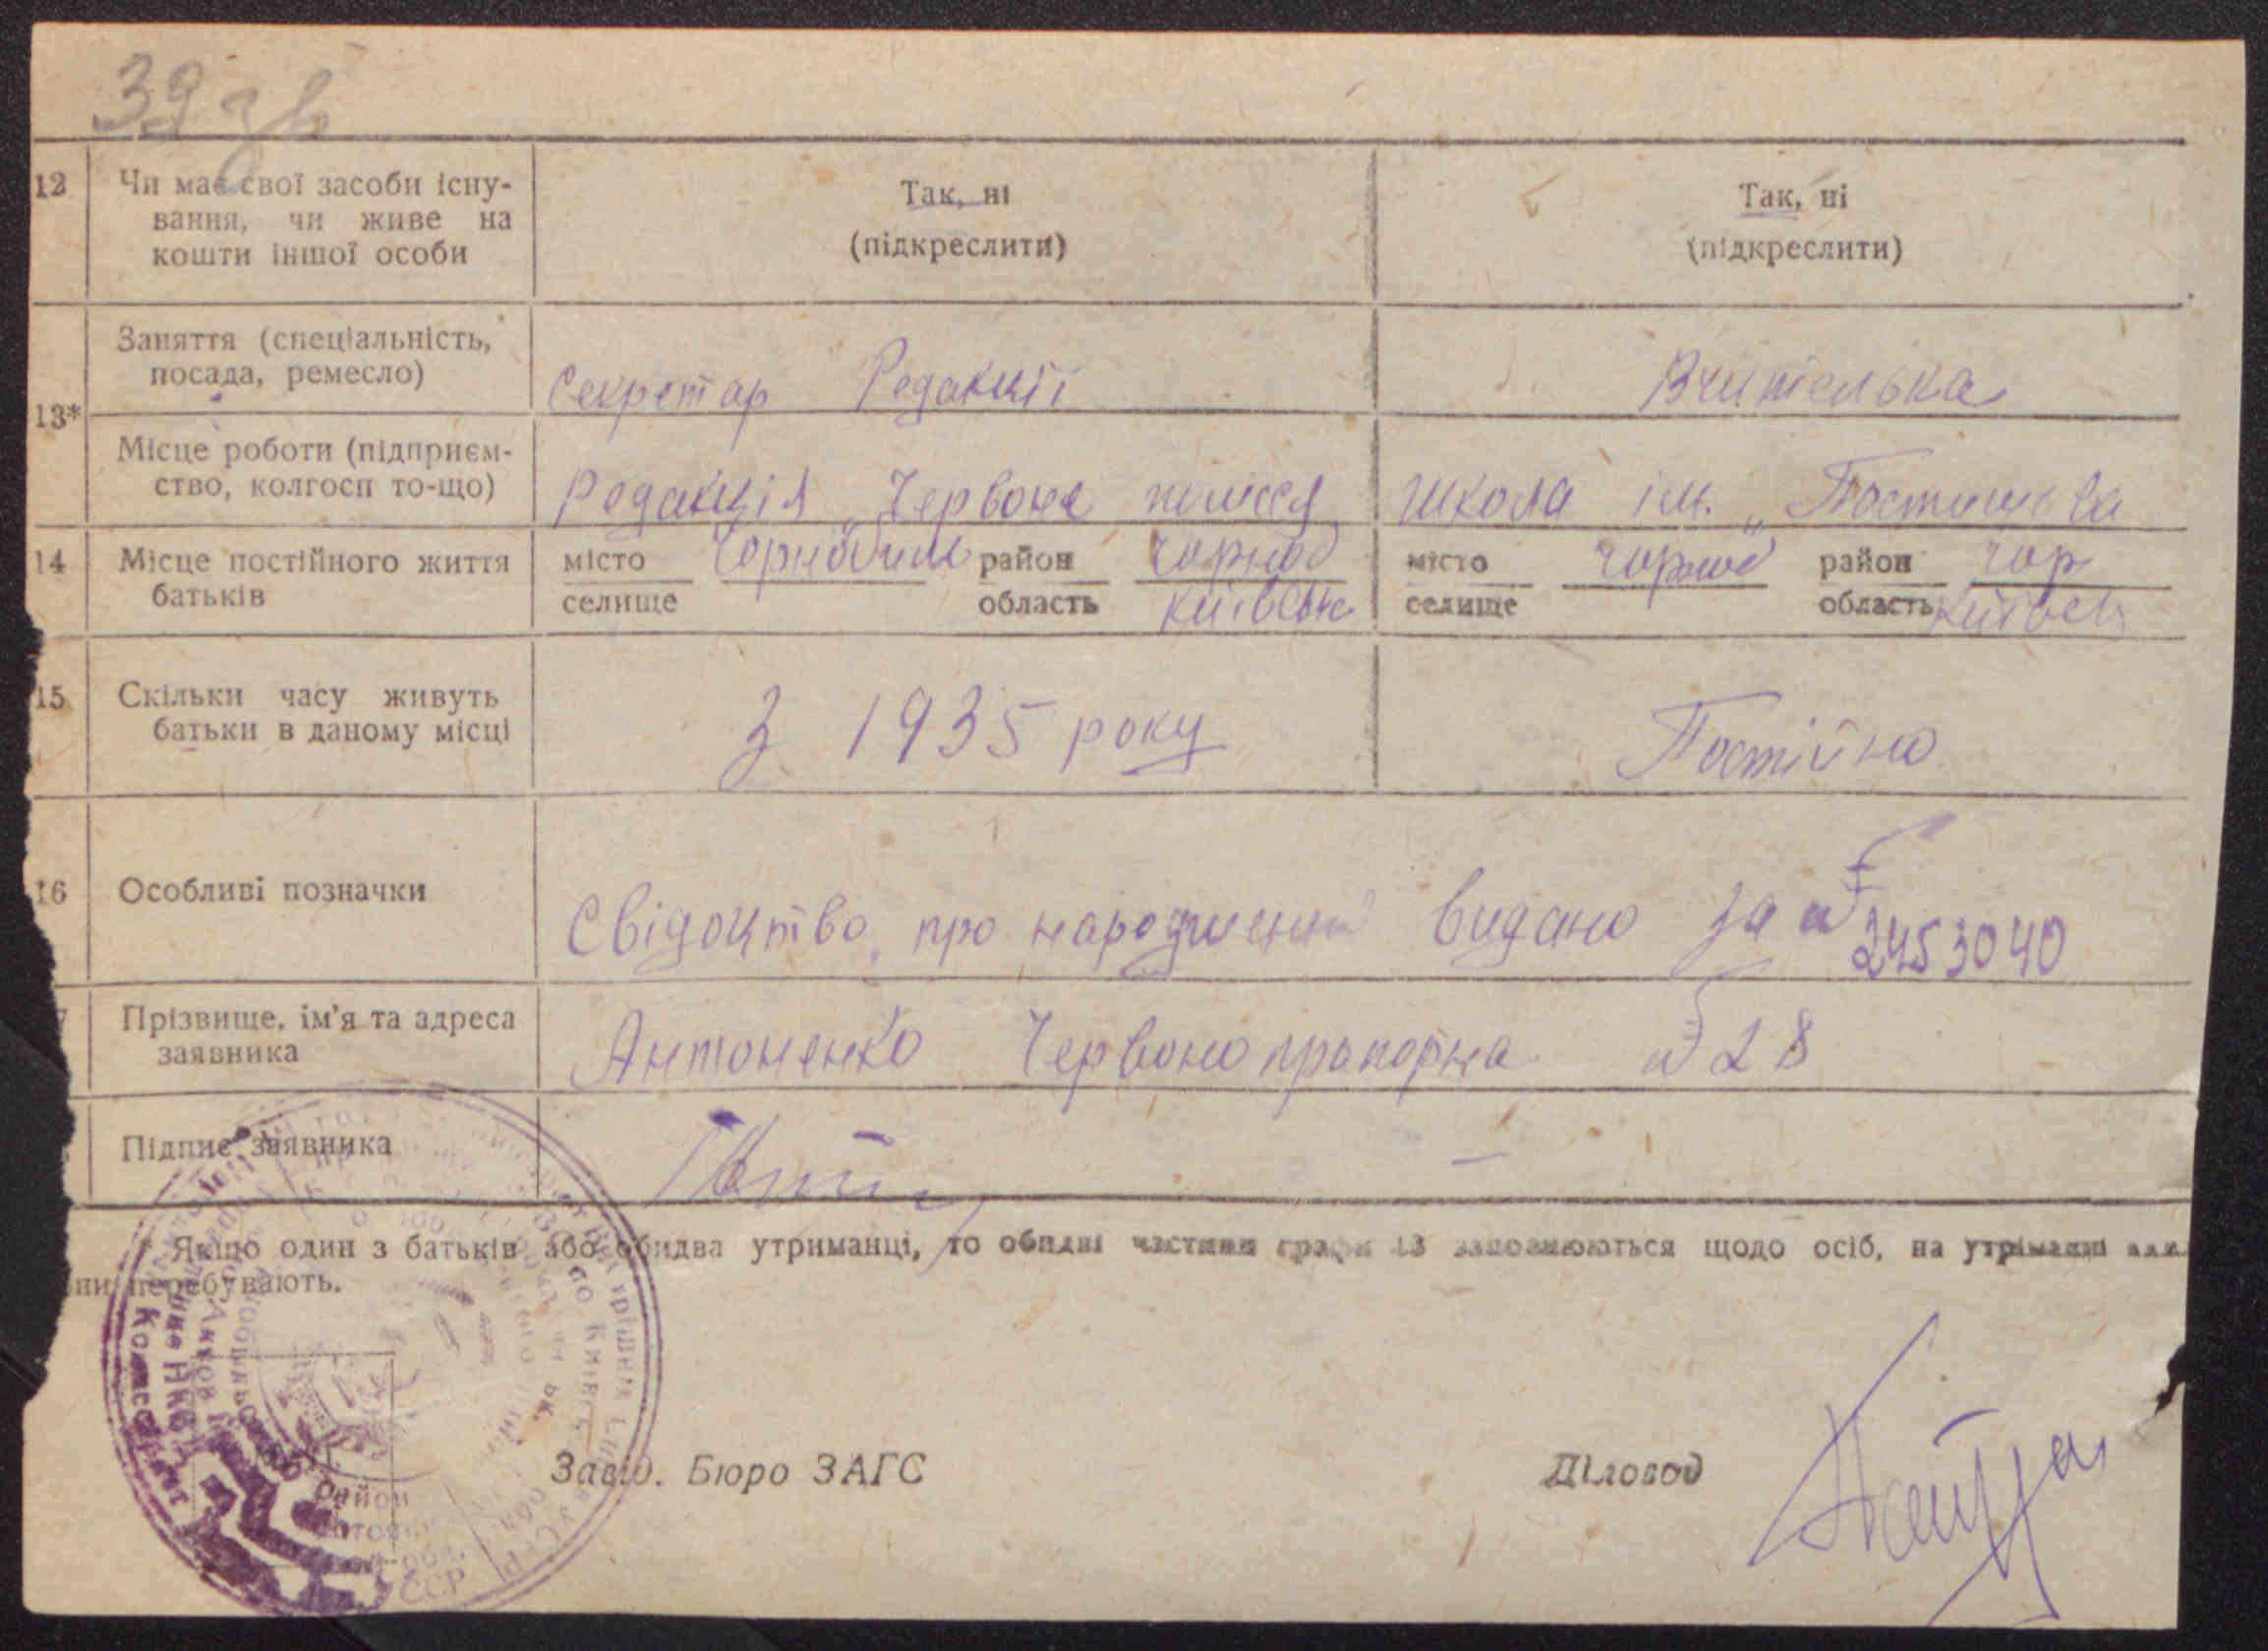 39 зв
12 Чи має свої засоби існу- Так, ні Так, ні
вання, чи живе на (підкреслити) (підкреслити)
кошти іншої особи
13* Заняття (спеціальність, Секретар Редакції Вчителька
посада, ремесло)
Місце роботи (підприєм- Редакція „Червоне полісся школа ім. „Постишева
ство, колгосп то-що)
14 Місце постійного життя місто Чорнобиль район Чорноб місто Чорноб район Чор
батьків селище область Київськ селище область Київськ
15 Скільки часу живуть З 1935 року Постійно
батьки в даному місці
16 Особливі позначки Свідоцтво про народження видано за № 2453040
Прізвище, ім'я та адреса Антоненко Червонопрапорна № 28
заявника
Підпис заявника
* Якщо один з батьків або обидва утриманці, то обидві частини графи 13 заповнюються щодо осіб, на утриманні
ни перебувають.
Завід. Бюро ЗАГС Діловод